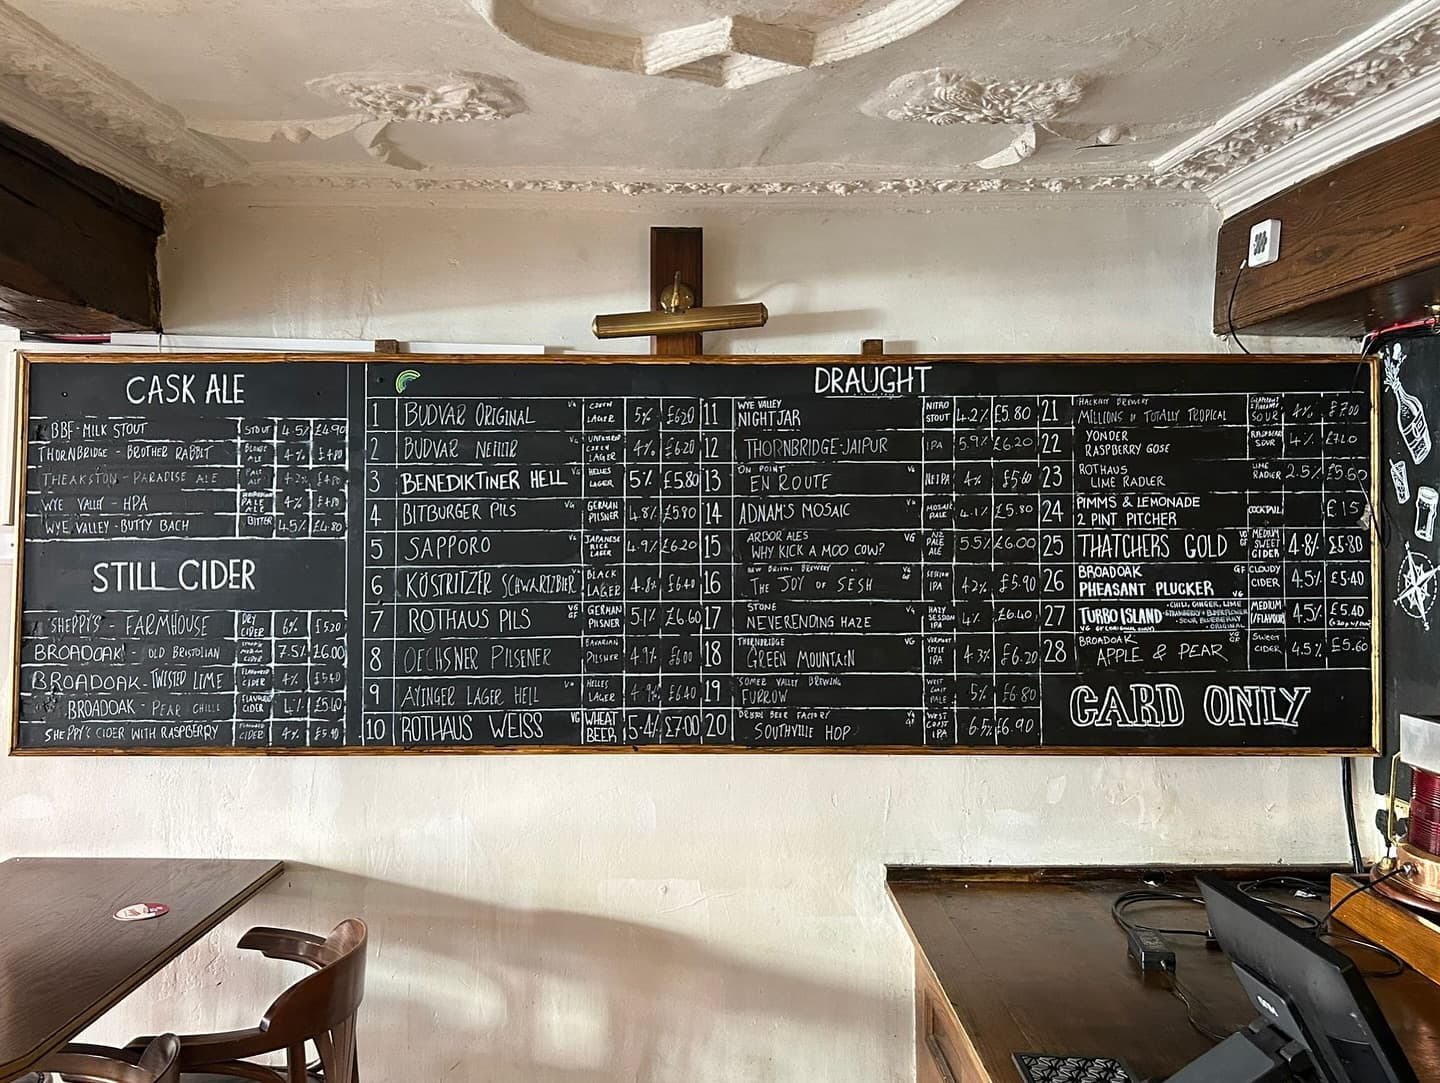 CASK ALE
BBF-MILK STOUT STOUT 4.5% £4.90
THORNBRIDGE - BROTHER RABBIT BLONDE ALE 4%
THEAKSTON - PARADISE ALE PALE ALE
WYE VALLEY - HPA PALE ALE 4%
WYE VALLEY - BUTTY BACH BITTER 4.5% £4.80
STILL CIDER
SHEPPY'S - FARMHOUSE DRY CIDER 6% £5.20
BROADOAK - OLD BRISTOLIAN CIDER 7.5% £6.00
BROADOAK - TWISTED LIME FLAVOURED CIDER 4% £5.40
BROADOAK - PEAR CHILLI FLAVOURED CIDER 4% £5.40
SHEPPY'S CIDER WITH RASPBERRY FLAVOURED CIDER 4% £5.40
DRAUGHT
1 BUDVAR ORIGINAL CZECH LAGER 5% £6.20
2 BUDVAR NEFILTR VG UNFILTERED CZECH LAGER 4% £6.20
3 BENEDIKTINER HELL VG HELLES LAGER 5% £5.80
4 BITBURGER PILS VG GERMAN PILSNER 4.8% £5.80
5 SAPPORO JAPANESE RICE LAGER 4.9% £6.20
6 KÖSTRITZER SCHWARTZBIER BLACK LAGER 4.8% £6.40
7 ROTHAUS PILS VG GF GERMAN PILSNER 5.1% £6.60
8 OECHSNER PILSENER BAVARIAN PILSNER 4.9% £6.00
9 AYINGER LAGER HELL VG HELLES LAGER 4.9% £6.40
10 ROTHAUS WEISS VG WHEAT BEER 5.4% £7.00
11 WYE VALLEY
NIGHTJAR NITRO STOUT 4.2% £5.80
12 THORNBRIDGE-JAIPUR IPA 5.9% £6.20
13 ON POINT
EN ROUTE VG NEIPA 4%
14 ADNAM'S MOSAIC VG MOSAIC PALE 4.1% £5.80
15 ARBOR ALES
WHY KICK A MOO COW? VG NZ PALE ALE 5.5% £6.00
16 NEW BRISTOL BREWERY
THE JOY OF SESH VG GF SESSION IPA 4.2% £5.90
17 STONE
NEVERENDING HAZE VG HAZY SESSION IPA 4% £6.40
18 THORNBRIDGE
GREEN MOUNTAIN VG VERMONT STYLE IPA 4.3% £6.20
19 SOMER VALLEY BREWING
FURROW WEST COAST PALE 5% £6.80
20 BEER FACTORY
SOUTHVILLE HOP VG GF WEST COAST IPA 6.5% £6.90
21 HACKNEY BREWERY
MILLIONS OF TOTALLY TROPICAL SOUR 4% £7.00
22 YONDER
RASPBERRY GOSE RASPBERRY SOUR 4%
23 ROTHAUS
LIME RADLER LIME RADLER 2.5%
24 PIMMS & LEMONADE
2 PINT PITCHER COCKTAIL £15
25 THATCHERS GOLD VG GF MEDIUM SWEET CIDER 4.8% £5.80
26 BROADOAK GF
PHEASANT PLUCKER VG CLOUDY CIDER 4.5% £5.40
27 TURBO ISLAND • CHILI, GINGER, LIME
• STRAWBERRY + ELDERFLOWER
• SOUR BLUEBERRY
• ORIGINAL
VG GF (ORIGINAL ONLY) MEDIUM /FLAVOURED 4.5% £5.40
28 BROADOAK
APPLE & PEAR VG GF SWEET CIDER 4.5% £5.60
CARD ONLY